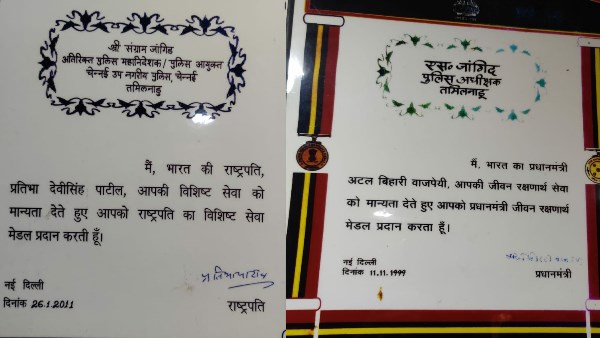 श्री संग्राम जांगिड
अतिरिक्त पुलिस महानिदेशक/ पुलिस आयुक्त
चेन्नई उप नगरीय पुलिस, चेन्नई
तमिलनाडु
मैं, भारत की राष्ट्रपति,
प्रतिभा देवीसिंह पाटील, आपकी विशिष्ट सेवा को
मान्यता देते हुए आपको राष्ट्रपति का विशिष्ट सेवा
मेडल प्रदान करती हूँ।
नई दिल्ली
दिनांक 26.1.2011
राष्ट्रपति
एस॰ जांगिद
पुलिस अधीक्षक
तमिलनाडू
मैं, भारत का प्रधानमंत्री
अटल बिहारी वाजपेयी, आपकी जीवन रक्षणार्थ सेवा
को मान्यता देते हुए आपको प्रधानमंत्री जीवन रक्षणार्थ
मेडल प्रदान करता हूँ।
नई दिल्ली
दिनांक 11.11.1999
प्रधानमंत्री